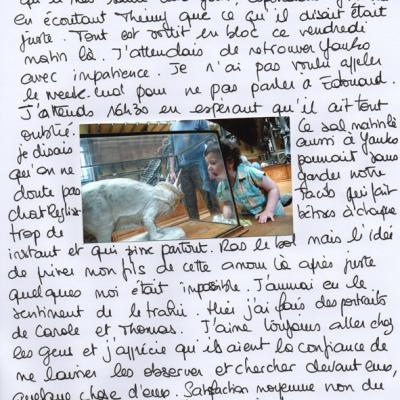 en écoutant Thierry que ce qu'il disait était
juste. Tout est sorti en bloc ce vendredi
matin là. J'attendais de retrouver Yauko
avec impatience. Je n'ai pas voulu appeler
le week-end pour ne pas parler à Edouard.
J'attends 16h30 en espérant qu'il ait tout
oublié. Ce sal matin là
je disais aussi à Yauko
qu'on ne pouvait sans
doute pas garder notre
chat qui fait
trop de bêtises à chaque
instant et qui pisse partout. Ras le bol mais l'idée
de priver mon fils de cette amour là après juste
quelques moi était impossible. J'aurai eu le
sentiment de le trahir. Hier j'ai fais des portraits
de Carole et Thomas. J'aime toujours aller chez
les gens et j'apprécie qu'ils aient la confiance de
me laisser les observer et chercher devant eux,
quelque chose d'eux. Satisfaction moyenne non du